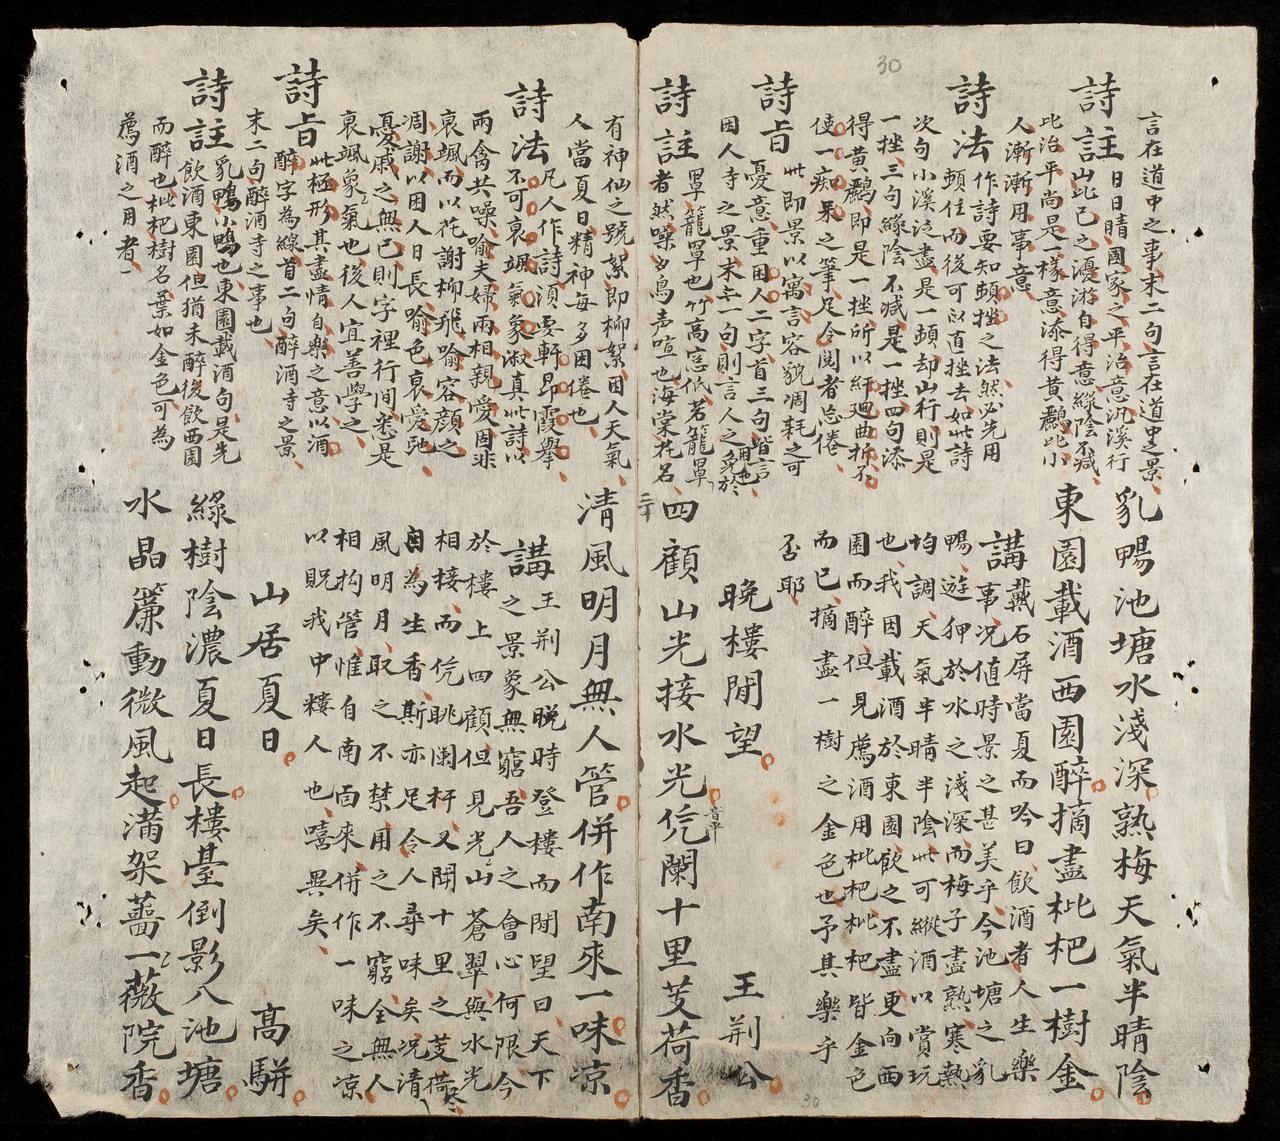 言在道中之事末二句言在道中之景
詩註日日晴國家之平治意泛溪行
山此己之優游自得意綠陰不減
此治平尚是一樣意添得黃鸝此小
人漸漸用事意
詩法作詩要知頓挫之法然必先用
頓住而後可以直挫去如此詩
次句小溪泛盡是一頓却山行則是
一挫三句綠陰不減是一挫四句添
得黃鸝即是一挫所以紆廻曲折不
使一痴呆之筆足令閱者忘倦
詩旨此即景以寓言容貌凋耗之可
憂意重困人二字首三句皆言
困人寺之景末一句則言人之免於
詩註罩籠罩也竹高窓低若籠罩
者然噪多鳥声喧也海棠花名
乳鴨池塘水淺深熟梅天氣半晴陰
東園載酒西園醉摘盡枇杷一樹金
講戴石屏當夏而吟曰飲酒者人生樂
事况值時景之甚美乎今池塘之乳
鴨遊狎於水之淺深而梅子盡熟寒熱
均調天氣半晴半陰此可縱酒以賞玩
也我因載酒於東園飲之不盡更向西
園而醉但見薦酒用枇杷枇杷皆金色
而已摘盡一樹之金色也予其樂乎
否耶
晚樓閒望 王荆公
四顧山光接水光凭闌十里芰荷香
三十
有神仙之號絮即柳絮困人天氣
人當夏日精神每多困倦也
詩法凡人作詩須要軒昂霞舉
不可衰颯氣象淑真此詩以
兩禽共噪喻夫婦兩相親愛固非
衰颯而以花謝柳飛喻容顏之
凋謝以困人日長喻色衰愛弛
憂戚之無已則字裡行間悉是
衰颯象氣也後人宜善學之
詩旨此極形其盡情自樂之意以酒
醉字為線首二句醉酒寺之景
末二句醉酒寺之事也
詩註乳鴨小鴨也東園載酒句是先
飲酒東園但猶未醉後飲西園
而醉也枇杷樹名葉如金色可為
薦酒之用者
清風明月無人管併作南來一味凉
講王荆公晚時登樓而閒望曰天下
之景象無窮吾人之會心何限今
於樓上四顧但見光山蒼翠與水光
相接而凭眺闌杆又開十里之芰荷
自為生香斯亦足令人尋味矣况清
風明月取之不禁用之不窮全無人
相拘管惟自南面來併作一味之凉
以貺我中樓人也嘻異矣
山居夏日 高駢
綠樹陰濃夏日長樓臺倒影入池塘
水晶簾動微風起滿架薔一薇院香
30
30